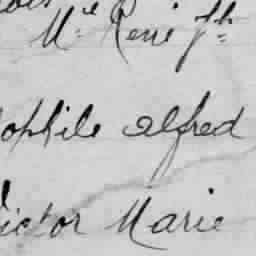 Mie René Jh
ophile alfred
ictor Marie